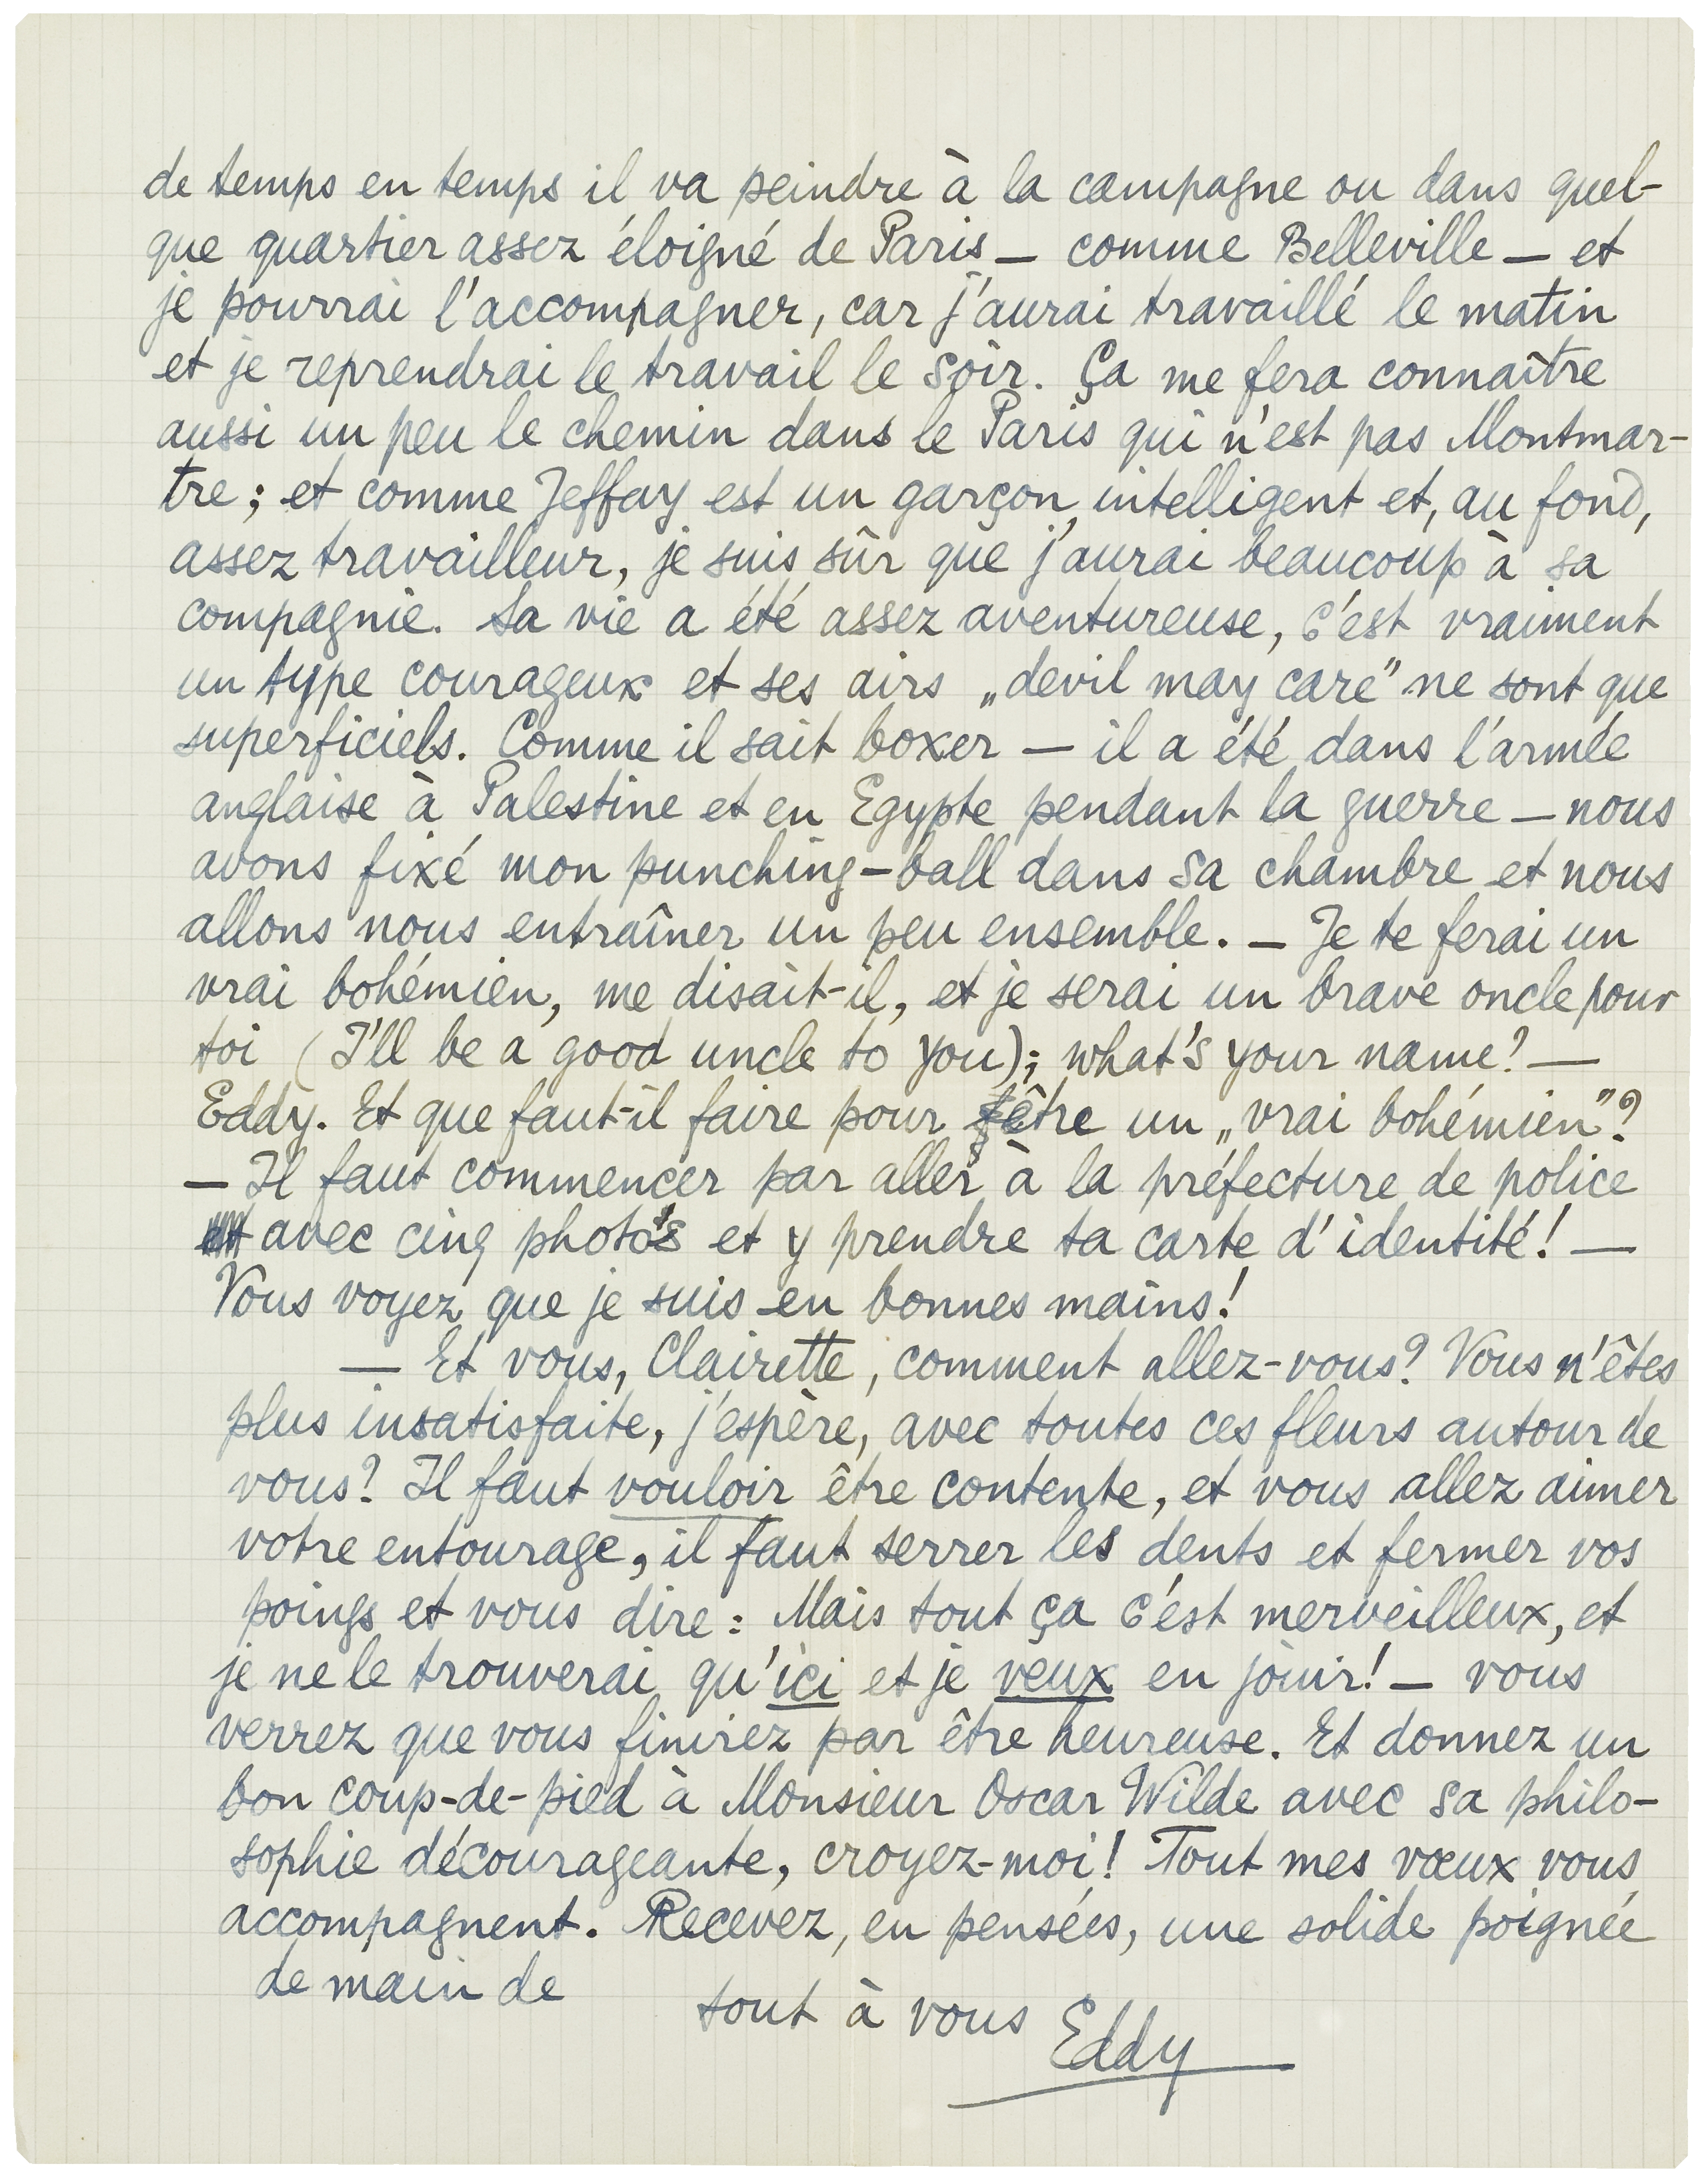 de temps en temps il va peindre à la campagne ou dans quel-
que quartier assez éloigné de Paris — comme Belleville — et
je pourrai l'accompagner, car j'aurai travaillé le matin
et je reprendrai le travail le soir. Ça me fera connaître
aussi un peu le chemin dans le Paris qui n'est pas Montmar-
tre; et comme Jeffay est un garçon intelligent et, au fond,
assez travailleur, je suis sûr que j'aurai beaucoup à sa
compagnie. Sa vie a été assez aventureuse, c'est vraiment
un type courageux et ses airs „devil may care" ne sont que
superficiels. Comme il sait boxer — il a été dans l'armée
anglaise à Palestine et en Egypte pendant la guerre — nous
avons fixé mon punching-ball dans sa chambre et nous
allons nous entraîner un peu ensemble. — Je te ferai un
vrai bohémien, me disait-il, et je serai un brave oncle pour
toi (I'll be a good uncle to you); what's your name? —
Eddy. Et que faut-il faire pour être un „vrai bohémien"?
— Il faut commencer par aller à la préfecture de police
avec cinq photo's et y prendre ta carte d'identité! —
Vous voyez que je suis en bonnes mains!
— Et vous, Clairette, comment allez-vous? Vous n'êtes
plus insatisfaite, j'espère, avec toutes ces fleurs autour de
vous? Il faut vouloir être contente, et vous allez aimer
votre entourage, il faut serrer les dents et fermer vos
poings et vous dire: Mais tout ça c'est merveilleux, et
je ne le trouverai qu'ici et je veux en jouir! — vous
verrez que vous finirez par être heureuse. Et donnez un
bon coup-de-pied à Monsieur Oscar Wilde avec sa philo-
sophie décourageante, croyez-moi! Tout mes vœux vous
accompagnent. Recevez, en pensées, une solide poignée
de main de
tout à vous
Eddy